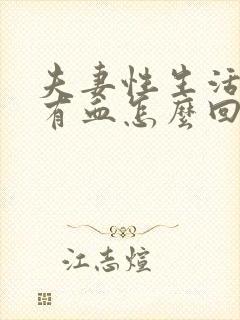 夫妻性生活
有血怎麼回
江志煊